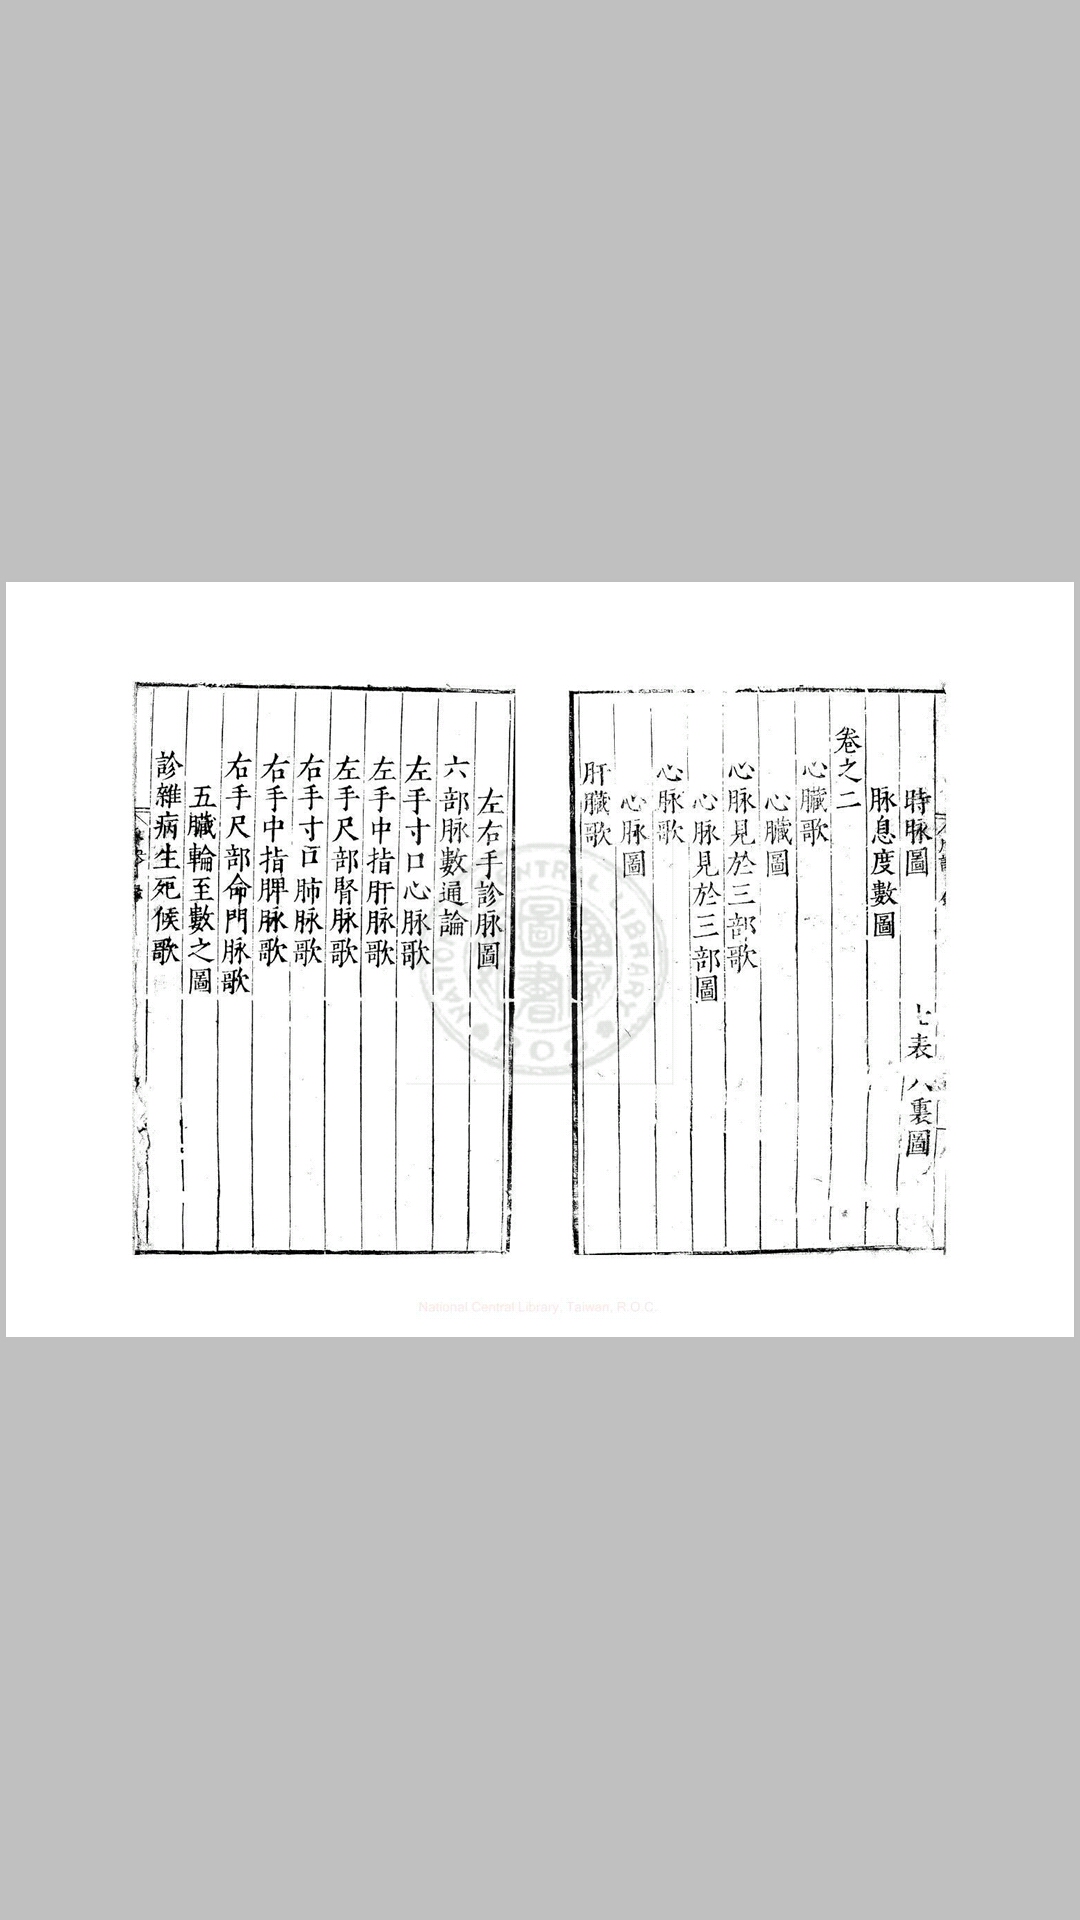 時脉圖　七表八裏圖
脉息度數圖
卷之二
心臟歌
心臟圖
心脉見於三部歌
心脉見於三部圖
心脉歌
心脉圖
肝臟歌
左右手診脉圖
六部脉數通論
左手寸口心脉歌
左手中指肝脉歌
左手尺部腎脉歌
右手寸口肺脉歌
右手中指脾脉歌
右手尺部命門脉歌
五臟輪至數之圖
診雜病生死候歌
NATIONAL CENTRAL LIBRARY
圖書
ROC
National Central Library, Taiwan, R.O.C.